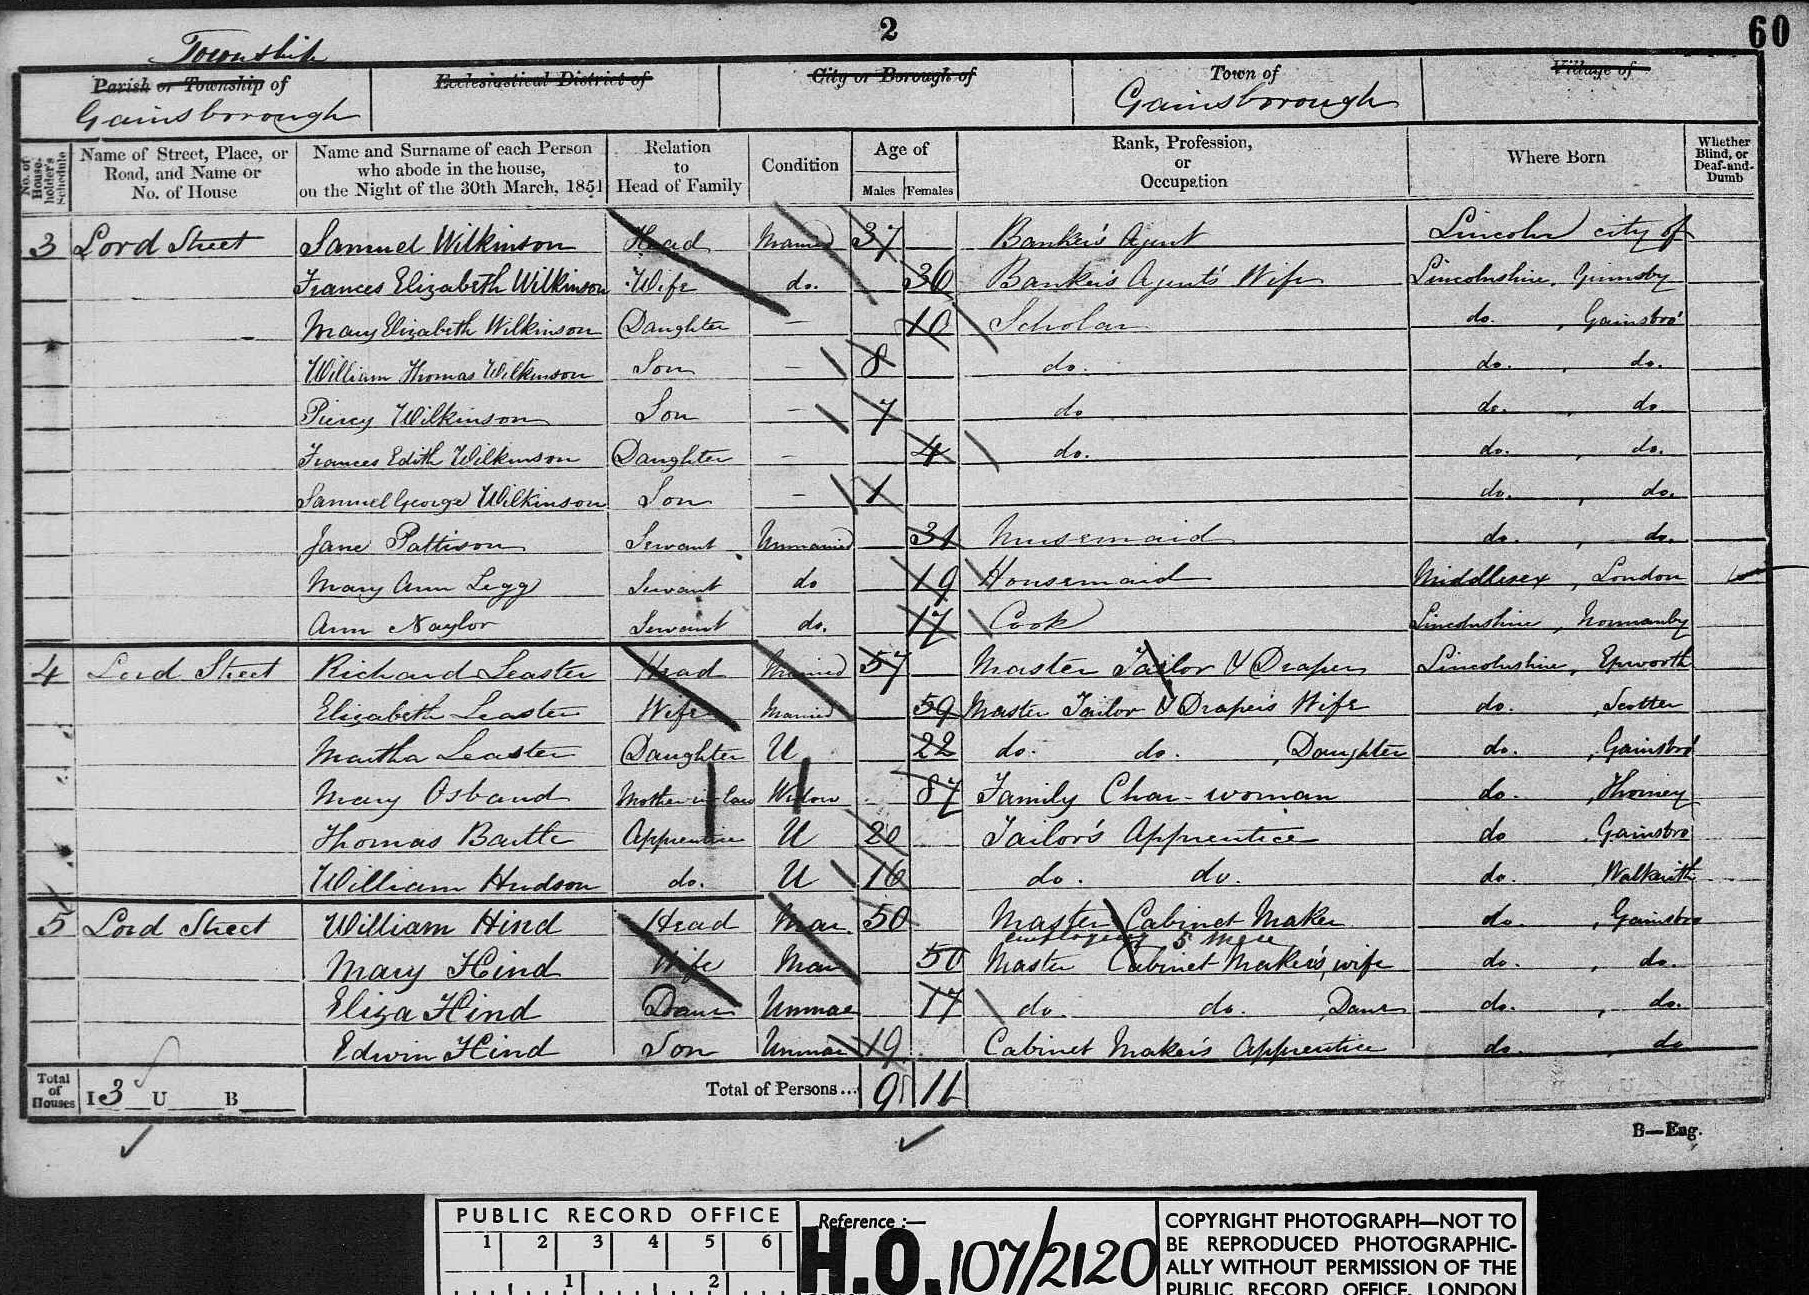 2
60
Township
Parish or Township of
Gainsborough
Ecclesiastical District of
City or Borough of
Town of
Gainsborough
Village of
No. of House-holder's Schedule
Name of Street, Place, or Road, and Name or No. of House
Name and Surname of each Person who abode in the house, on the Night of the 30th March, 1851
Relation to Head of Family
Condition
Age of
Males
Females
Rank, Profession, or Occupation
Where Born
Whether Blind, or Deaf-and-Dumb
3 Lord Street Samuel Wilkinson Head Married 37 Banker's Agent Lincoln city of
Frances Elizabeth Wilkinson Wife do. 36 Banker's Agent's Wife Lincolnshire, Grimsby
Mary Elizabeth Wilkinson Daughter — 10 Scholar do. , Gainsbro'
William Thomas Wilkinson Son — 8 do. do. , do.
Piercy Wilkinson Son — 7 do do. , do
Frances Edith Wilkinson Daughter — 4 do. do. , do.
Samuel George Wilkinson Son — 1 do. , do.
Jane Pattison Servant Unmarried 31 Nursemaid do. , do.
Mary Ann Legg Servant do 19 Housemaid Middlesex, London
Ann Naylor Servant do. 17 Cook Lincolnshire, Normanby
4 Lord Street Richard Leaster Head Married 57 Master Tailor & Draper Lincolnshire, Epworth
Elizabeth Leaster Wife Married 59 Master Tailor & Draper's Wife do. , Scotter
Martha Leaster Daughter U 22 do. do. , Daughter do. , Gainsbro
Mary Osband Mother-in-law Widow 87 Family Char-woman do. , Thorney
Thomas Bartle Apprentice U 20 Tailor's Apprentice do , Gainsbro
William Hudson do. U 16 do. do. do. , Walkerith
5 Lord Street William Hind Head Mar. 50 Master Cabinet Maker do. , Gainsbro
employing 5 men
Mary Hind Wife Mar 50 Master Cabinet Maker's, wife do. , do.
Eliza Hind Daur Unmar 17 do. do. Daur do. , do.
Edwin Hind Son Unmar 19 Cabinet Maker's Apprentice do. , do
Total of Houses
I 3 U B
Total of Persons... 9 11
B—Eng.
PUBLIC RECORD OFFICE
1 2 3 4 5 6
1 2
Reference :—
H.O. 107/2120
COPYRIGHT PHOTOGRAPH—NOT TO
BE REPRODUCED PHOTOGRAPHIC-
ALLY WITHOUT PERMISSION OF THE
PUBLIC RECORD OFFICE, LONDON